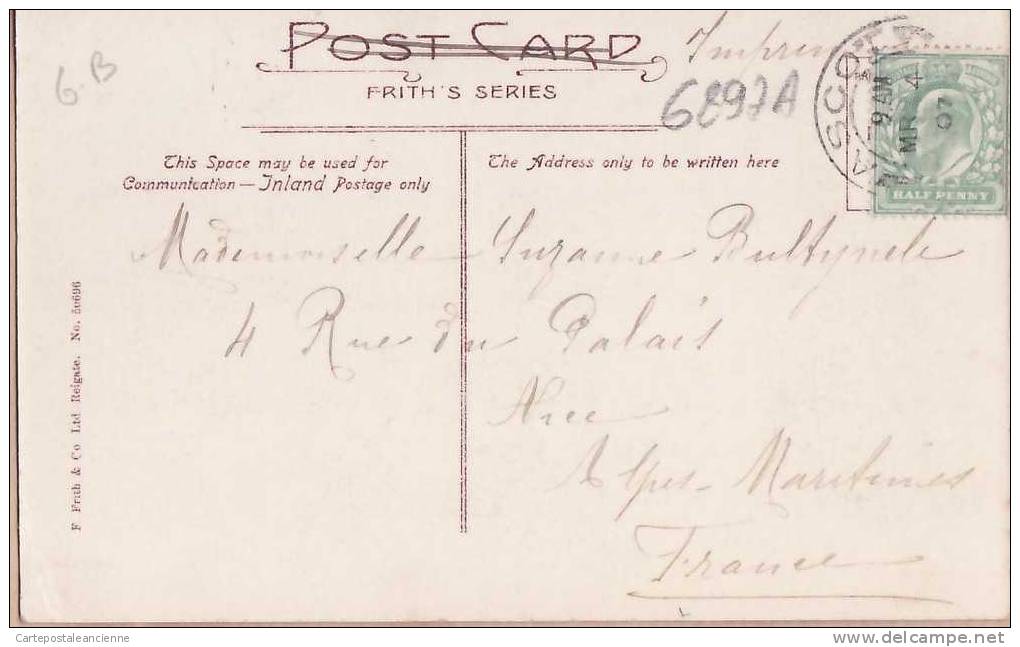 POST CARD
FRITH'S SERIES
G.B
6897A
ASCOT
9 AM
MR 4
07
HALF PENNY
This Space may be used for
Communication — Inland Postage only
The Address only to be written here
Mademoiselle Suzanne
4 Rue du Palais
Nice
Alpes-Maritimes
France
F Frith & Co Ltd Reigate. No. 50696
Cartepostaleancienne
www.delcampe.net